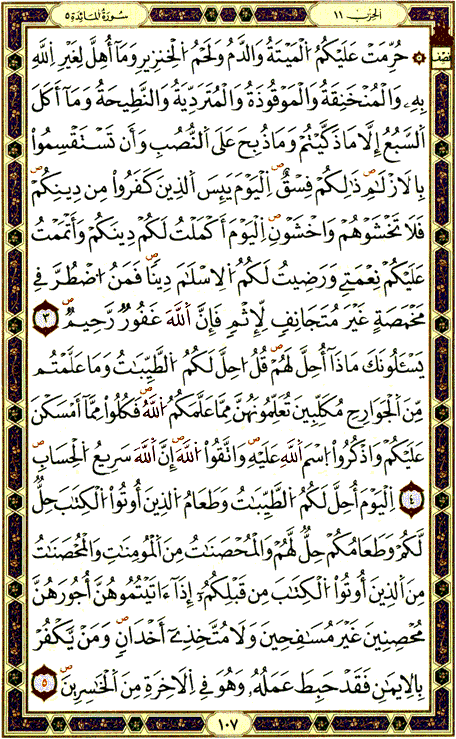 سُورَةُ المَائِدَة ٥
الحِزب ١١
نصف
حُرِّمَتْ عَلَيْكُمُ اُلْمَيْتَةُ وَالدَّمُ وَلَحْمُ اُلْخِنزِيرِ وَمَآ أُهِلَّ لِغَيْرِ اِللَّهِ
بِهِۦ وَالْمُنْخَنِقَةُ وَالْمَوْقُوذَةُ وَالْمُتَرَدِّيَةُ وَالنَّطِيحَةُ وَمَآ أَكَلَ
اَلسَّبُعُ إِلَّا مَا ذَكَّيْتُمْ وَمَا ذُبِحَ عَلَى اَلنُّصُبِ وَأَن تَسْتَقْسِمُواْ
بِالَازْلَٰمِ ذَٰلِكُمْ فِسْقٌ اِلْيَوْمَ يَئِسَ اَلذِينَ كَفَرُواْ مِن دِينِكُمْ
فَلَا تَخْشَوْهُمْ وَاخْشَوْنِ اِلْيَوْمَ أَكْمَلْتُ لَكُمْ دِينَكُمْ وَأَتْمَمْتُ
عَلَيْكُمْ نِعْمَتِے وَرَضِيتُ لَكُمُ اُلِاسْلَٰمَ دِيناً فَمَنُ اُضْطُرَّ فِے
مَخْمَصَةٍ غَيْرَ مُتَجَانِفٍ لِّإِثْمٍ فَإِنَّ اَللَّهَ غَفُورٌ رَّحِيمٌ ٣
يَسْـَٔلُونَكَ مَاذَا أُحِلَّ لَهُمْ قُلُ احِلَّ لَكُمُ اُلطَّيِّبَٰتُ وَمَا عَلَّمْتُم
مِّنَ اَلْجَوَارِحِ مُكَلِّبِينَ تُعَلِّمُونَهُنَّ مِمَّا عَلَّمَكُمُ اُللَّهُ فَكُلُواْ مِمَّا أَمْسَكْنَ
عَلَيْكُمْ وَاذْكُرُواْ اُسْمَ اَللَّهِ عَلَيْهِ وَاتَّقُواْ اُللَّهَ إِنَّ اَللَّهَ سَرِيعُ اُلْحِسَابِ
٤ اِلْيَوْمَ أُحِلَّ لَكُمُ اُلطَّيِّبَٰتُ وَطَعَامُ اُلذِينَ أُوتُواْ اُلْكِتَٰبَ حِلٌّ
لَّكُمْ وَطَعَامُكُمْ حِلٌّ لَّهُمْ وَالْمُحْصَنَٰتُ مِنَ اَلْمُومِنَٰتِ وَالْمُحْصَنَٰتُ
مِنَ اَلذِينَ أُوتُواْ اُلْكِتَٰبَ مِن قَبْلِكُمُۥٓ إِذَآ ءَاتَيْتُمُوهُنَّ أُجُورَهُنَّ
مُحْصِنِينَ غَيْرَ مُسَٰفِحِينَ وَلَا مُتَّخِذِےٓ أَخْدَانٍ وَمَنْ يَّكْفُرْ
بِالِايمَٰنِ فَقَدْ حَبِطَ عَمَلُهُۥ وَهُوَ فِے اِلَاخِرَةِ مِنَ اَلْخَٰسِرِينَ ٥
١٠٧